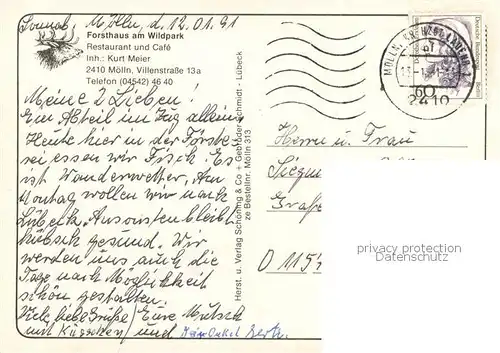 Sonnab, Mölln, d. 12.01.91
Forsthaus am Wildpark
Restaurant und Café
Inh.: Kurt Meier
2410 Mölln, Villenstraße 13a
Telefon (04542) 46 40
Meine 2 Lieben!
Ein Abteil im Zug allein,
Heute hier in der Förste-
rei essen wir Fisch. Es
ist Wanderwetter. Am
Montag wollen wir nach
Lübeck. Ansonsten bleibt
hübsch gesund. Wir
werden uns auch die
Tage nach Möglichkeit
schön gestalten.
Viele liebe Grüße / Eure Mutsch
mit Küsschen / und Dein Onkel
Herst. u. Verlag Schöning & Co + Gebrüder Schmidt · Lübeck
ze Bestellnr. Mölln 313
Deutsche Bundespost Berlin
60
2410
Herrn u. Frau
Siegm
Graße
O 1154
privacy protection
Datenschutz